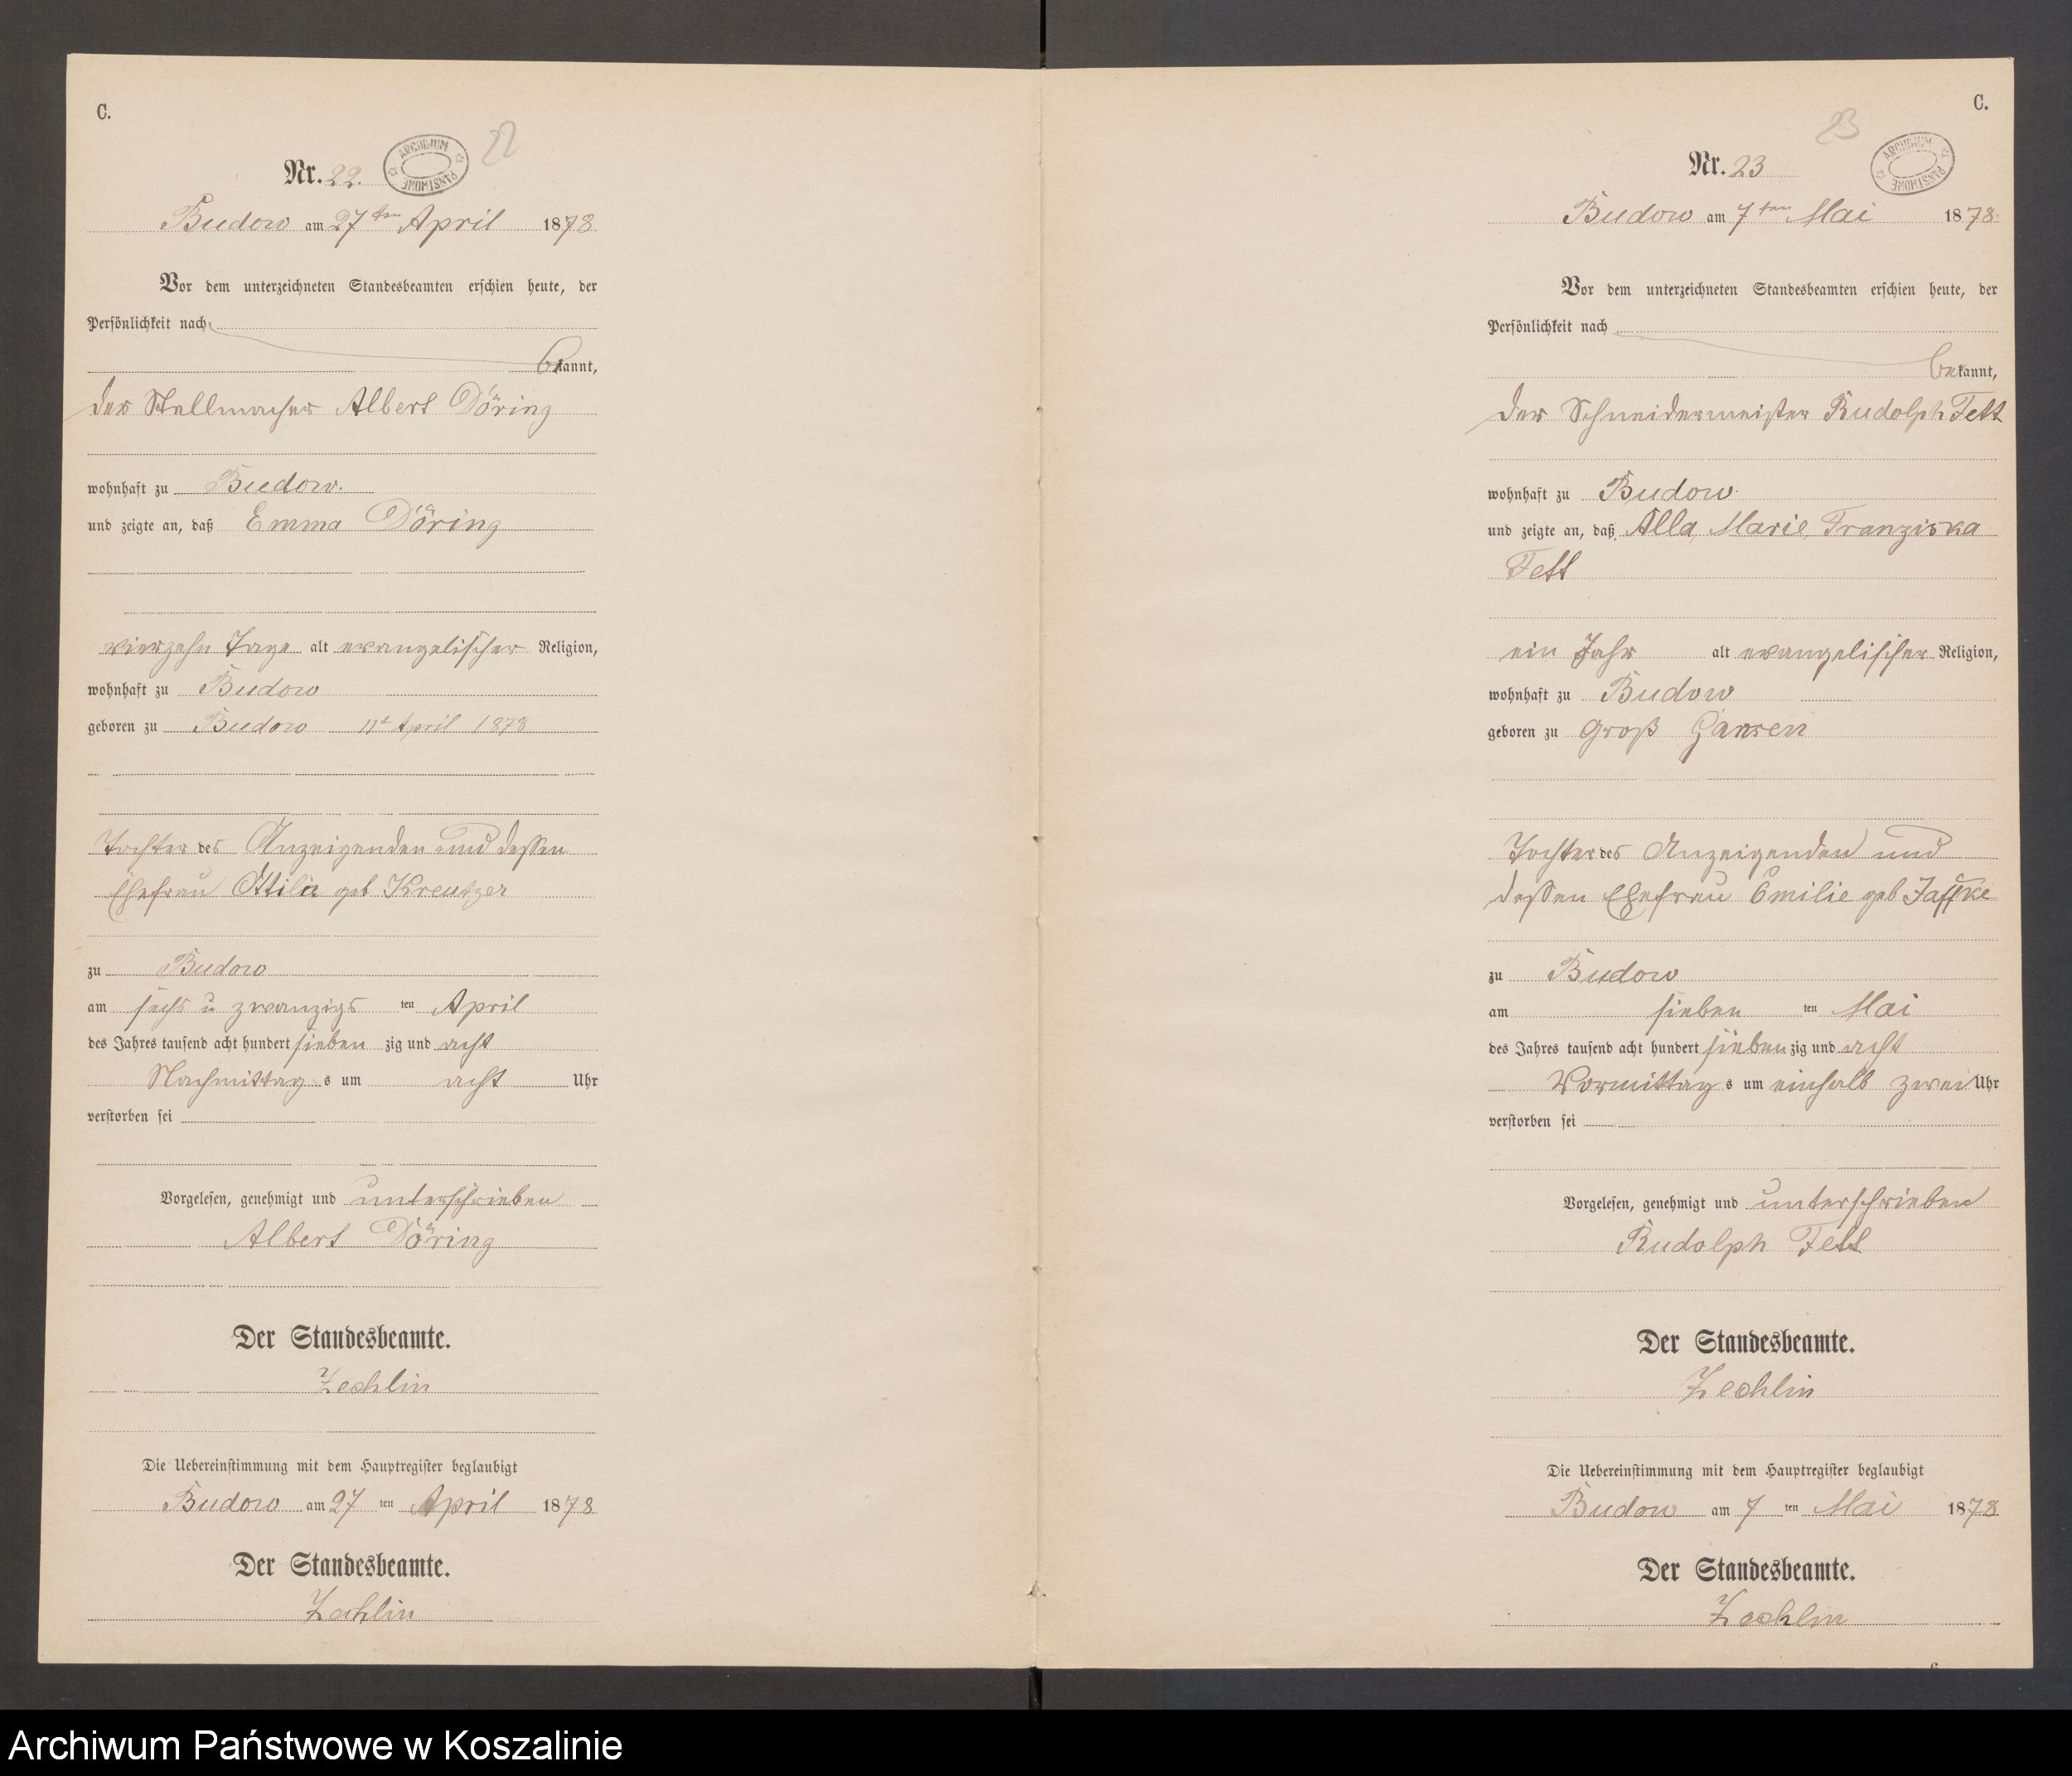 C.
Nr. 22.
ARCHIWUM PAŃSTWOWE
22
Budow am 27ten April 1878
Vor dem unterzeichneten Standesbeamten erschien heute, der
Persönlichkeit nach
bekannt,
der Stellmacher Albert Döring
wohnhaft zu Budow.
und zeigte an, daß Emma Döring
vierzehn Tage alt evangelischer Religion,
wohnhaft zu Budow
geboren zu Budow April 1878
Tochter des Anzeigenden und dessen
Ehefrau Ottilia geb Kreutzer
zu Budow
am sechs u zwanzigsten April
des Jahres tausend acht hundert siebenzig und acht
Nachmittags um acht Uhr
verstorben sei
Vorgelesen, genehmigt und unterschrieben
Albert Döring
Der Standesbeamte.
Zechlin
Die Uebereinstimmung mit dem Hauptregister beglaubigt
Budow am 27ten April 1878
Der Standesbeamte.
Zechlin
C.
23
Nr. 23
ARCHIWUM PAŃSTWOWE
Budow am 7ten Mai 1878.
Vor dem unterzeichneten Standesbeamten erschien heute, der
Persönlichkeit nach
bekannt,
der Schneidermeister Rudolph Fett
wohnhaft zu Budow.
und zeigte an, daß Alla, Marie, Franziska
Fett
ein Jahr alt evangelischer Religion,
wohnhaft zu Budow
geboren zu Groß Gansen
Tochter des Anzeigenden und
dessen Ehefrau Emilie geb
zu Budow
am siebenten Mai
des Jahres tausend acht hundert siebenzig und acht
Vormittags um einhalb zwei Uhr
verstorben sei
Vorgelesen, genehmigt und unterschrieben
Rudolph Fett
Der Standesbeamte.
Zechlin
Die Uebereinstimmung mit dem Hauptregister beglaubigt
Budow am 7ten Mai 1878
Der Standesbeamte.
Zechlin
Archiwum Państwowe w Koszalinie